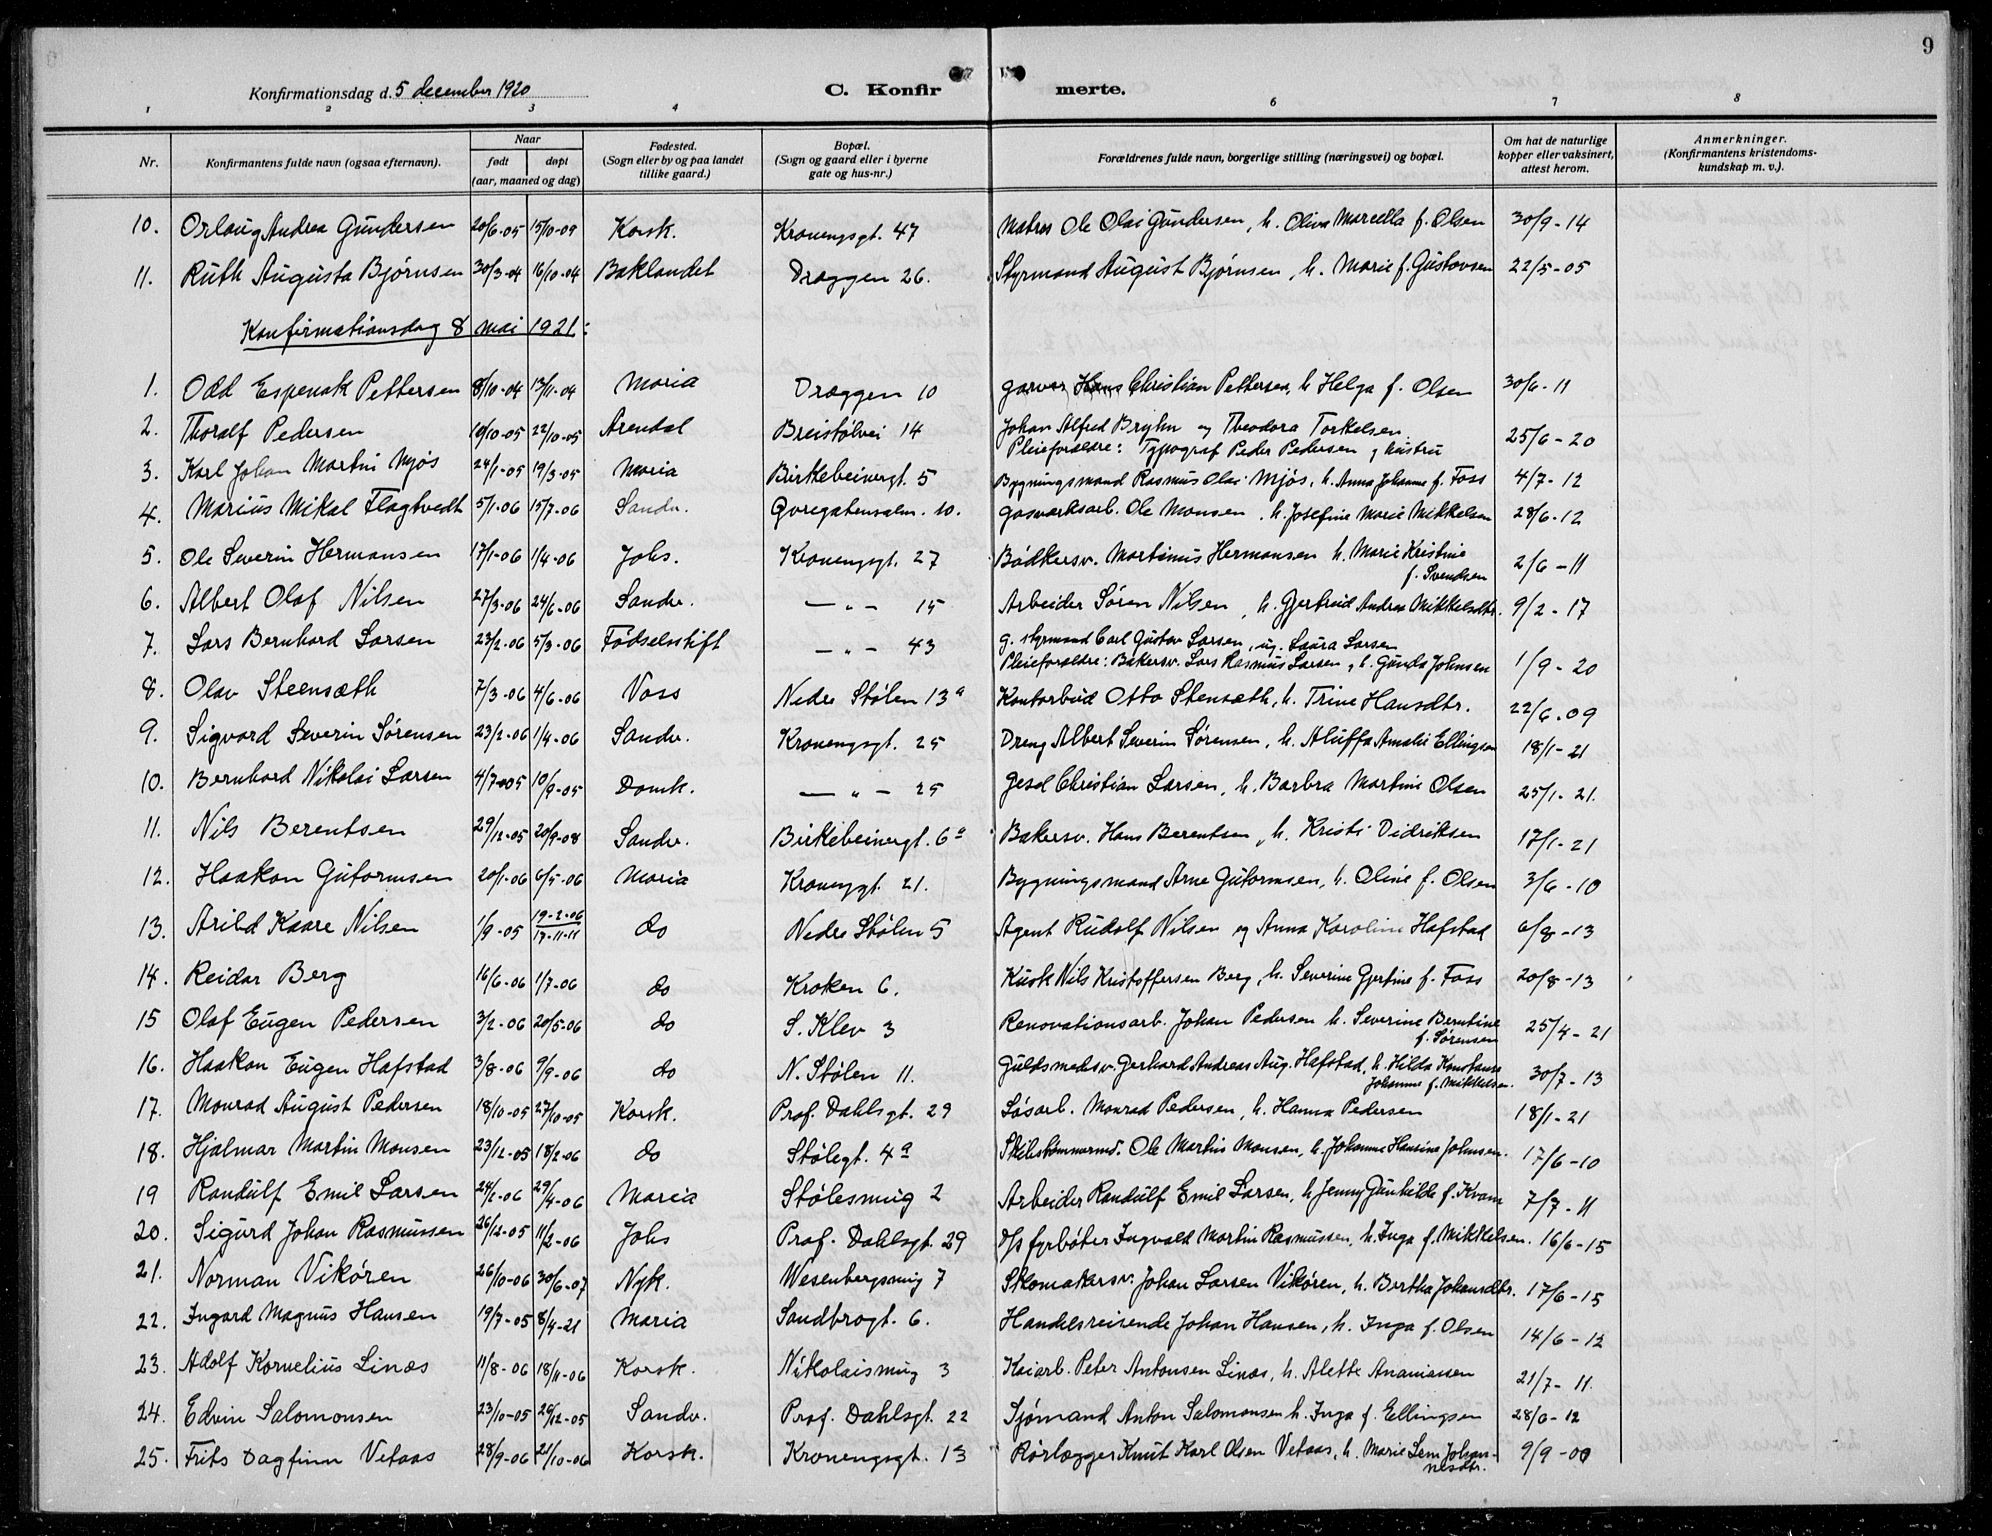 9
Konfirmationsdag d. 5 december 1920 C. Konfirmerte.
1 2 3 4 6 7 8
Nr. Konfirmantens fulde navn (ogsaa efternavn). Naar født døpt (aar, maaned og dag) Fødested. (Sogn eller by og paa landet tillike gaard.) Bopæl. (Sogn og gaard eller i byerne gate og hus-nr.) Forældrenes fulde navn, borgerlige stilling (næringsvei) og bopæl. Om hat de naturlige kopper eller vaksinert, attest herom. Anmerkninger. (Konfirmantens kristendomskundskap m. v.).
10. Orlaug Andrea Gundersen 20/6-05 15/10-09 Korsk. Kronengsgt. 47 Matros Ole Olai Gundersen, h. Oliva Marcella f. Olsen 30/9-14
11. Ruth Augusta Bjørnsen 30/3-04 16/10-04 Baklandet Dræggen 26. Styrmand August Bjørnsen, h. Marie f. Gustavsen 22/5-05
Konfirmationsdag 8 mai 1921:
1. Odd Espenak Pettersen 8/10-04 13/11-04 Maria Dræggen 10 garver Hans Christian Pettersen, h. Helga f. Olsen 30/6-11
2. Thoralf Pedersen 10/10-05 22/10-05 Arendal Breistølvei 14 Johan Alfred Bryhn og Theodora Torkelsen
Pleieforældre: Typograf Peder Pedersen og hustru 25/6-20
3. Karl Johan Martin Mjøs 24/1-05 19/3-05 Maria Birkebeinergt. 5 Bygningsmand Rasmus Olai Mjøs, h. Anna Johanne f. Foss 4/7-12
4. Marius Mikal Flagtvedt 5/1-06 15/7-06 Sandv. Øvregatensalm. 10. gasværksarb. Ole Monsen, h. Josefine Marie Mikkelsen 28/6-12
5. Ole Severin Hermansen 17/1-06 1/4-06 Johs. Kronengsgt. 27 Bødkersv. Martinus Hermansen h. Marie Kristine
f. Svendsen 2/6-11
6. Albert Olaf Nilsen 27/3-06 24/6-06 Sandv. — " — 15 Arbeider Søren Nilsen, h. Gjertrud Andrea Mikkelsdtr. 9/2-17
7. Lars Bernhard Larsen 23/2-06 5/3-06 Fødselsstift — " — 43 g. styrmand Carl Gustav Larsen, ug. Laura Larsen
Pleieforældre: Bakersv. Lars Rasmus Larsen, h. Gunda Johnsen 1/9-20
8. Olav Steensæth 7/3-06 4/6-06 Voss Nedre Stølen 13a Kontorbud Otto Stensæth, h. Trine Hansdtr. 22/6-09
9. Sigvard Severin Sørensen 23/2-06 1/4-06 Sandv. Kronengsgt. 25 Dreng Albert Severin Sørensen, h. Aluffa Amalie Ellingsen 18/1-21
10. Bernhard Nikolai Larsen 4/7-05 10/9-05 Domk. — " — 25 Gesel Christian Larsen, h. Barbra Martine Olsen 25/1-21.
11. Nils Berentsen 29/12-05 20/9-08 Sandv. Birkebeinergt. 6a Bakersv. Hans Berentsen, h. Kristi Didriksen 17/1-21
12. Haakon Gutormsen 20/1-06 6/5-06 Maria Kronenggt. 21. Bygningsmand Arne Gutormsen, h. Oline f. Olsen 3/6-10
13. Arild Kaare Nilsen 1/9-05 19-2-06 17-11-11 do Nedre Stølen 5 Agent Rudolf Nilsen og Anna Karoline Hafstad 6/8-13
14. Reidar Berg 16/6-06 1/7-06 do Kroken 6. Kusk Nils Kristoffersen Berg, h. Severine Gjertine f. Foss 20/8-13
15 Olaf Eugen Pedersen 3/2-06 20/5-06 do S. Klev 3 Renovationsarb. Johan Pedersen h. Severine Berntine
f. Sørensen 25/4-21
16. Haakon Eugen Hafstad 3/8-06 9/9-06 do N. Stølen 11. Guldsmedsv. Gerhard Andreas Aug. Hafstad, h. Hilda Konstanse
Johanne f. Mikkelsen. 30/7-13
17. Monrad August Pedersen 18/10-05 27/10-05 Korsk. Prof. Dahlsgt. 29 Løsarb. Monrad Pedersen, h. Hanna Pedersen 18/1-21
18. Hjalmar Martin Monsen 23/12-05 18/2-06 do Stølegt. 4a Skibstømmermd. Ole Martin Monsen, h. Johanne Hansine Johnsen. 17/6-10
19 Randulf Emil Larsen 24/1-06 29/4-06 Maria Stølesmug 2 Arbeider Randulf Emil Larsen, h. Jenny Gunhilde f. Kvam 7/7-11
20. Sigurd Johan Rasmussen 26/12-05 11/2-06 Johs Prof. Dahlsgt. 29 D/s fyrbøter Ingvald Martin Rasmussen, h. Inga f. Mikkelsen. 16/6-15
21. Norman Vikøren 26/10-06 30/6-07 Nyk. Wesenbergsmug 7 Skomakersv. Johan Larsen Vikøren, h. Bertha Johansdtr. 17/6-15
22. Ingard Magnus Hansen 19/7-05 8/4-21 Maria Sandbrogt. 6. Handelsreisende Johan Hansen, h. Inga f. Olsen 14/6-12
23. Adolf Kornelius Linæs 11/8-06 18/11-06 Korsk. Nikolaismug 3 Kaiarb. Peter Antonsen Linæs, h. Alette Ananiassen 21/7-11.
24. Edvin Salomonsen 23/10-05 29/12-05 Sandv. Prof. Dahlsgt. 22 Sjømand Anton Salomonsen h. Inga f. Ellingsen 28/6-12
25. Frits Dagfinn Vetaas 28/9-06 21/10-06 Korsk. Kronengsgt. 13 Rørlægger Knut Karl Olsen Vetaas, h. Marie Lem Johan-
nesdtr. 9/9-00